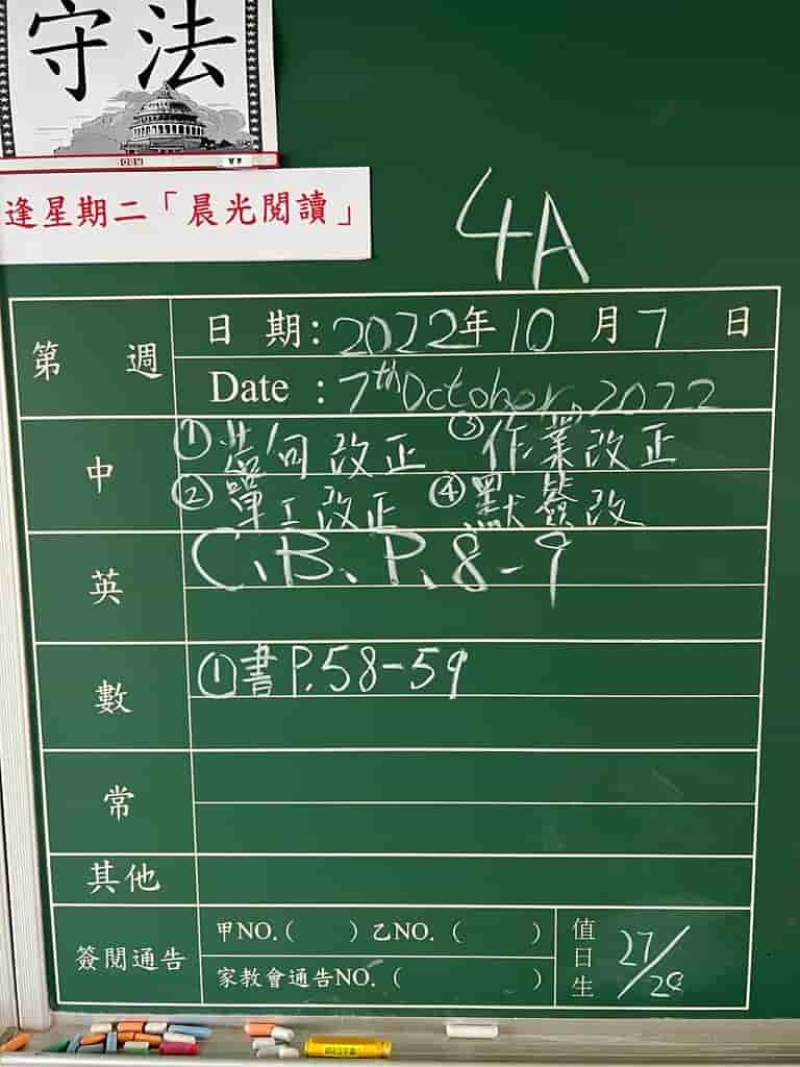 守法
逢星期二「晨光閱讀」
4A
第 週
日 期: 2022年10月7日
Date : 7th October, 2022
中
① 句改正 ③ 作業改正
② 單工改正 ④ 默簽改
英
C、B、P、8-9
數
① 書P.58-59
常
其他
簽閱通告
甲NO.( ) 乙NO.( )
家教會通告NO.( )
值日生
27/